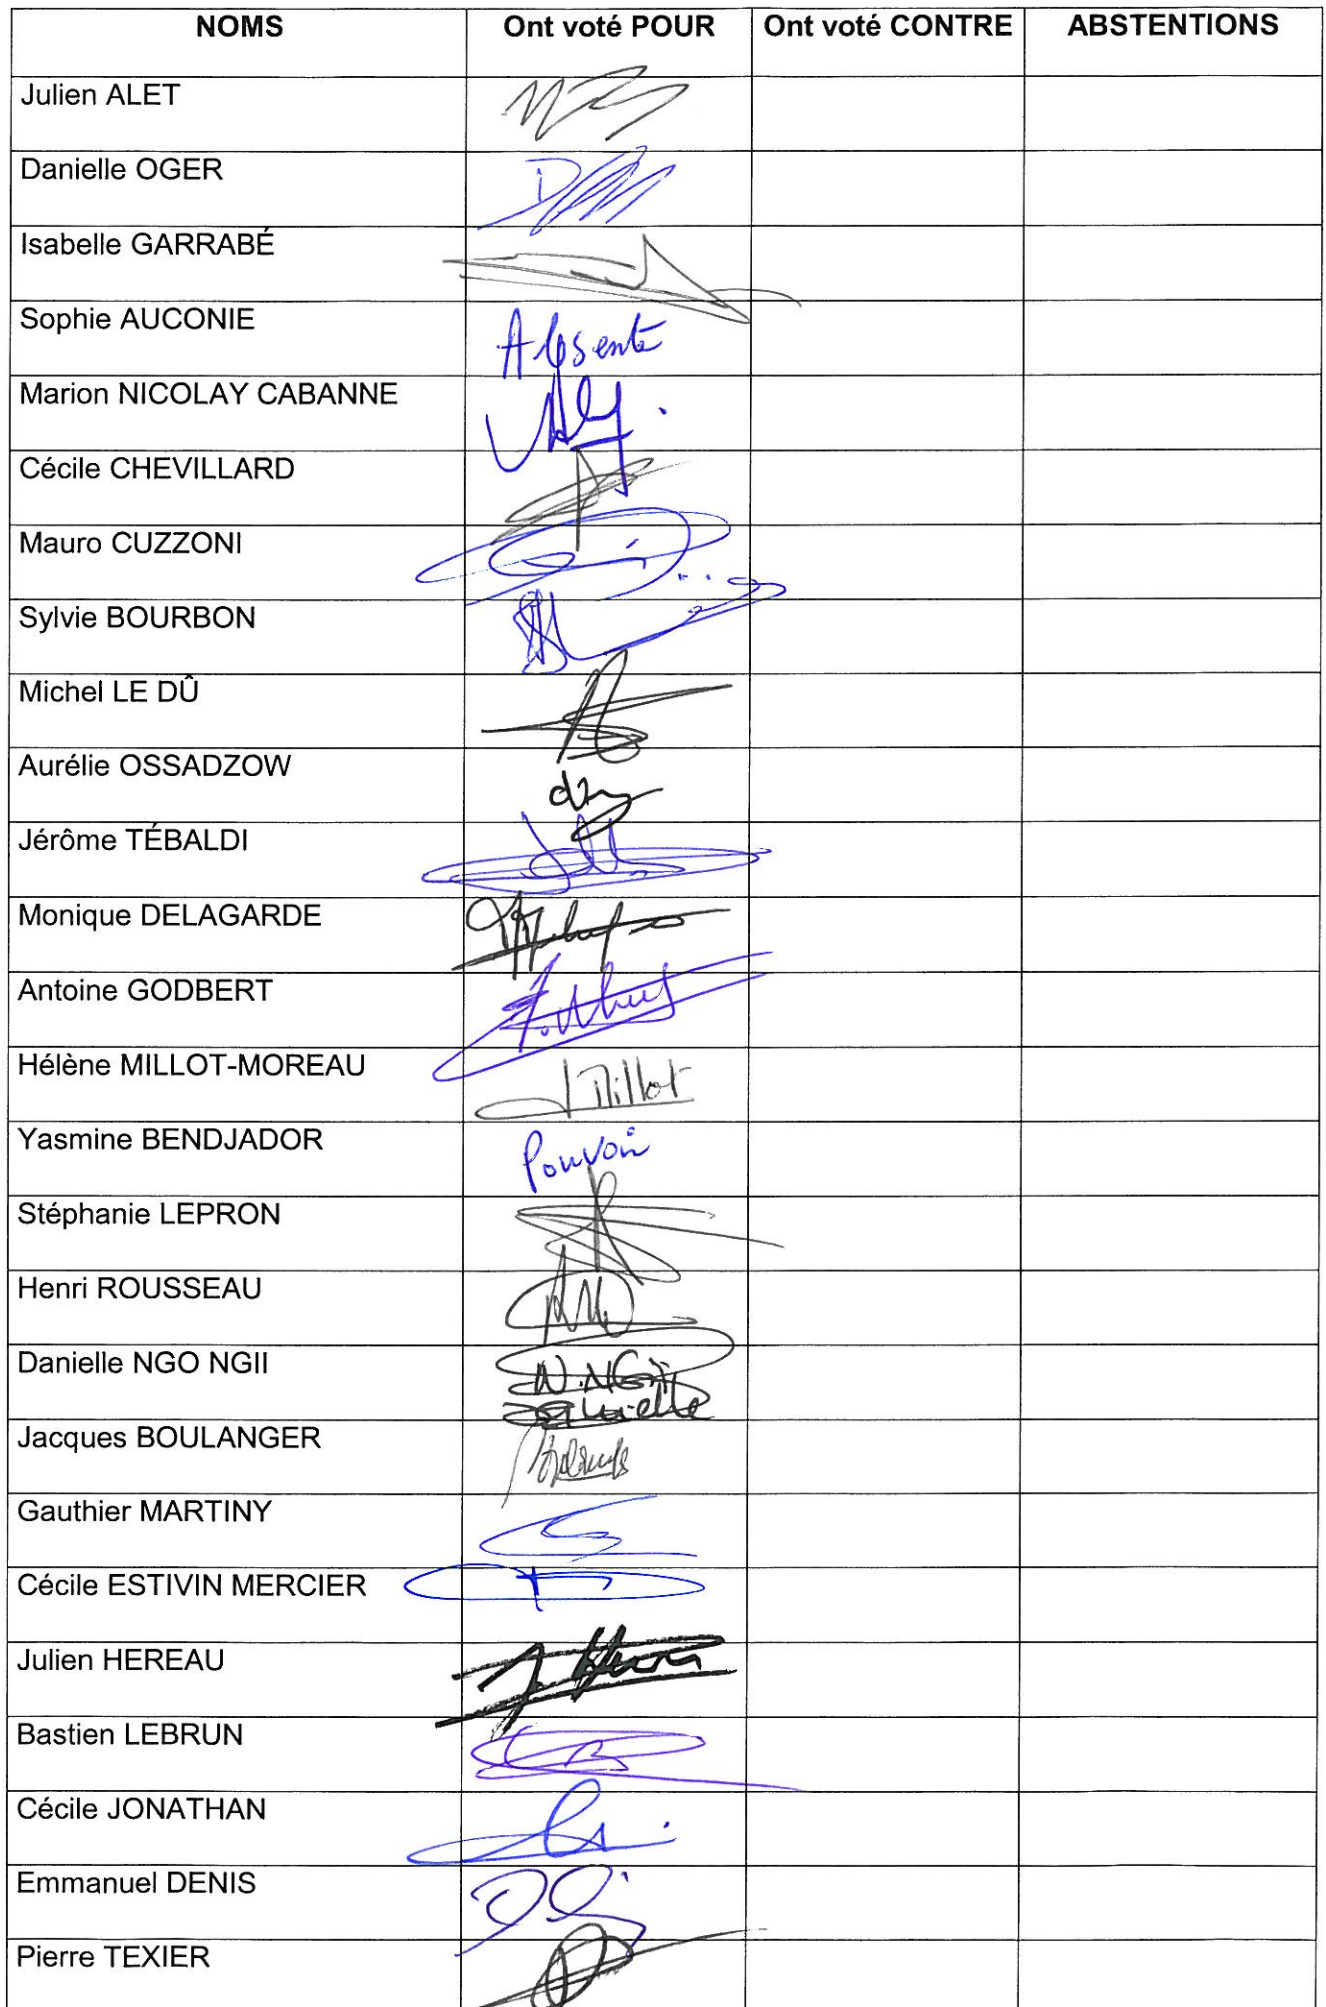 NOMS Ont voté POUR Ont voté CONTRE ABSTENTIONS
Julien ALET
Danielle OGER
Isabelle GARRABÉ
Sophie AUCONIE Absente
Marion NICOLAY CABANNE
Cécile CHEVILLARD
Mauro CUZZONI
Sylvie BOURBON
Michel LE DÛ
Aurélie OSSADZOW
Jérôme TÉBALDI
Monique DELAGARDE
Antoine GODBERT
Hélène MILLOT-MOREAU Millot
Yasmine BENDJADOR Pouvoir
Stéphanie LEPRON
Henri ROUSSEAU
Danielle NGO NGII N.NGII
Danielle
Jacques BOULANGER
Gauthier MARTINY
Cécile ESTIVIN MERCIER
Julien HEREAU
Bastien LEBRUN
Cécile JONATHAN
Emmanuel DENIS
Pierre TEXIER